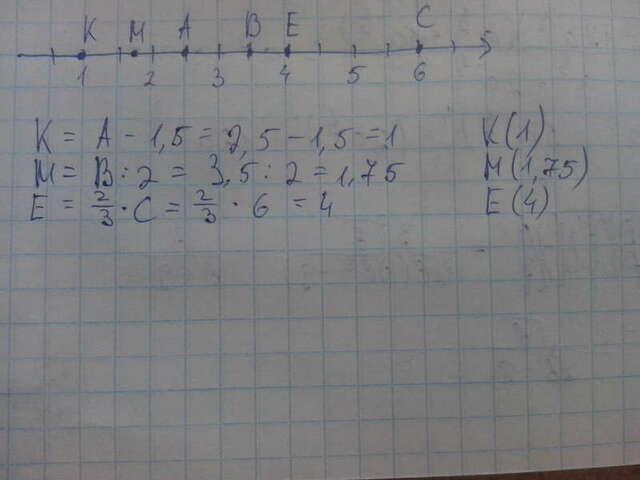 K M A B E C
1 2 3 4 5 6
K = A - 1,5 = 2,5 - 1,5 = 1 K(1)
M = B : 2 = 3,5 : 2 = 1,75 M(1,75)
E = 2/3 · C = 2/3 · 6 = 4 E(4)